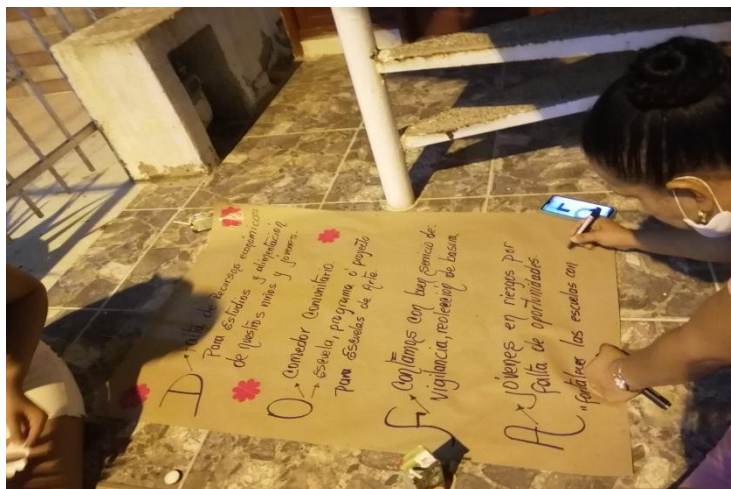 D → Falta de Recursos económicos
Para Estudios y alimentación
de nuestros niños y jovenes.
O → Comedor Comunitario.
→ escuela, programa o proyecto
Para Escuelas de Arte.
F → Contamos con buen servicio de:
vigilancia, recolección de basura,
A → Jóvenes en riesgos por
falta de oportunidades.
"Fortalecer las escuelas con